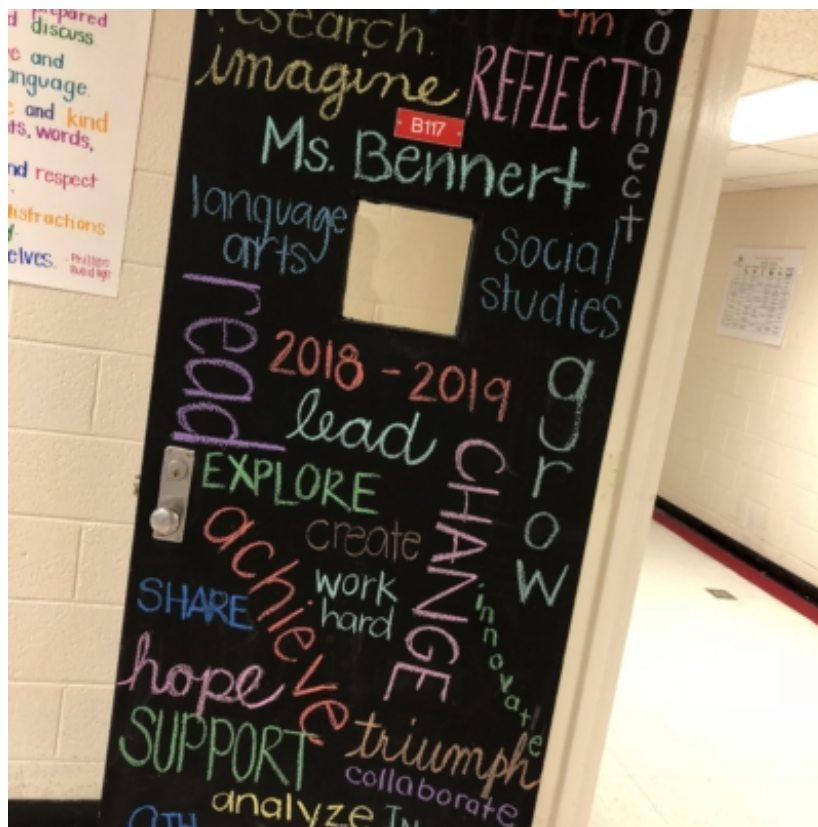 prepared
discuss
and
language.
and kind
words,
and respect
distractions
elves. -Phillips
research.
imagine
REFLECT
connect
B117
Ms. Bennert
language
arts
social
studies
read
2018 - 2019
lead
grow
CHANGE
EXPLORE
create
achieve
work
hard
SHARE
innovate
hope
SUPPORT
triumph
collaborate
analyze